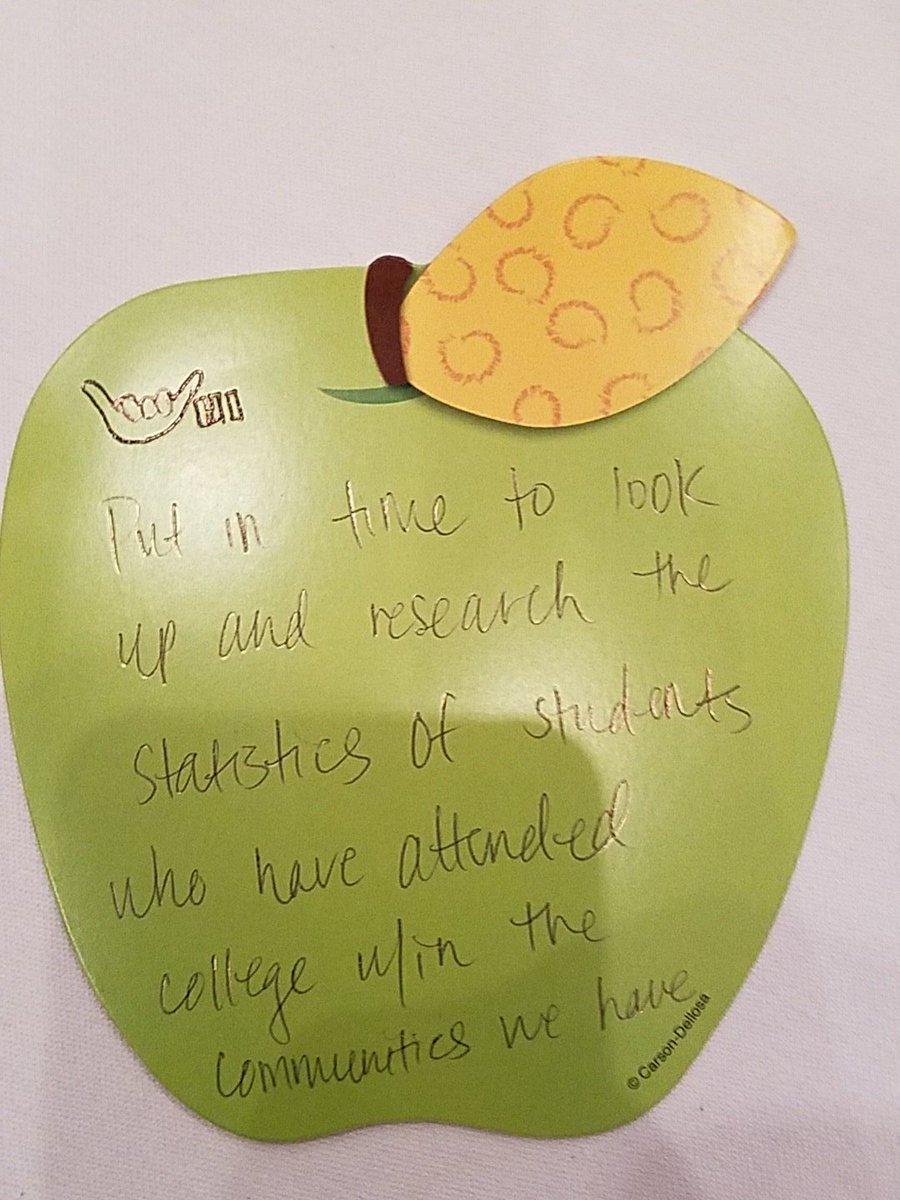 HI
Put in time to look
up and research the
statistics of students
who have attended
college w/in the
communities we have
© Carson-Dellosa